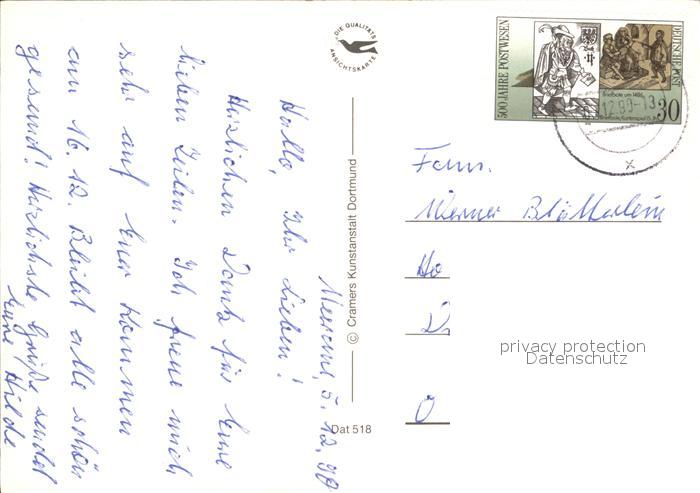 DIE QUALITÄTS
ANSICHTSKARTE
500 JAHRE POSTWESEN
DEUTSCHE POST
Briefbote um 1486
30
12.89-13
Meerane, 5.12.90
Hallo, Ihr Lieben!
Herzlichen Dank für Eure
lieben Zeilen. Ich freue mich
sehr auf Euer Kommen
am 16.12. Bleibt alle schön
gesund! Herzlichste Grüße sendet
Eure Hilde
© Cramers Kunstanstalt Dortmund
Dat 518
Fam.
Werner Blätterlein
privacy protection
Datenschutz